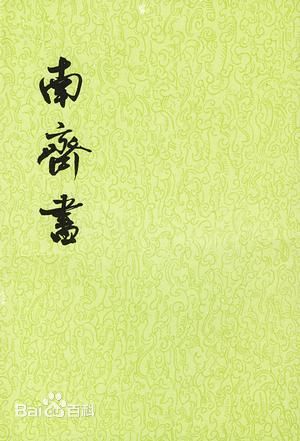 南齊書
Bai百科